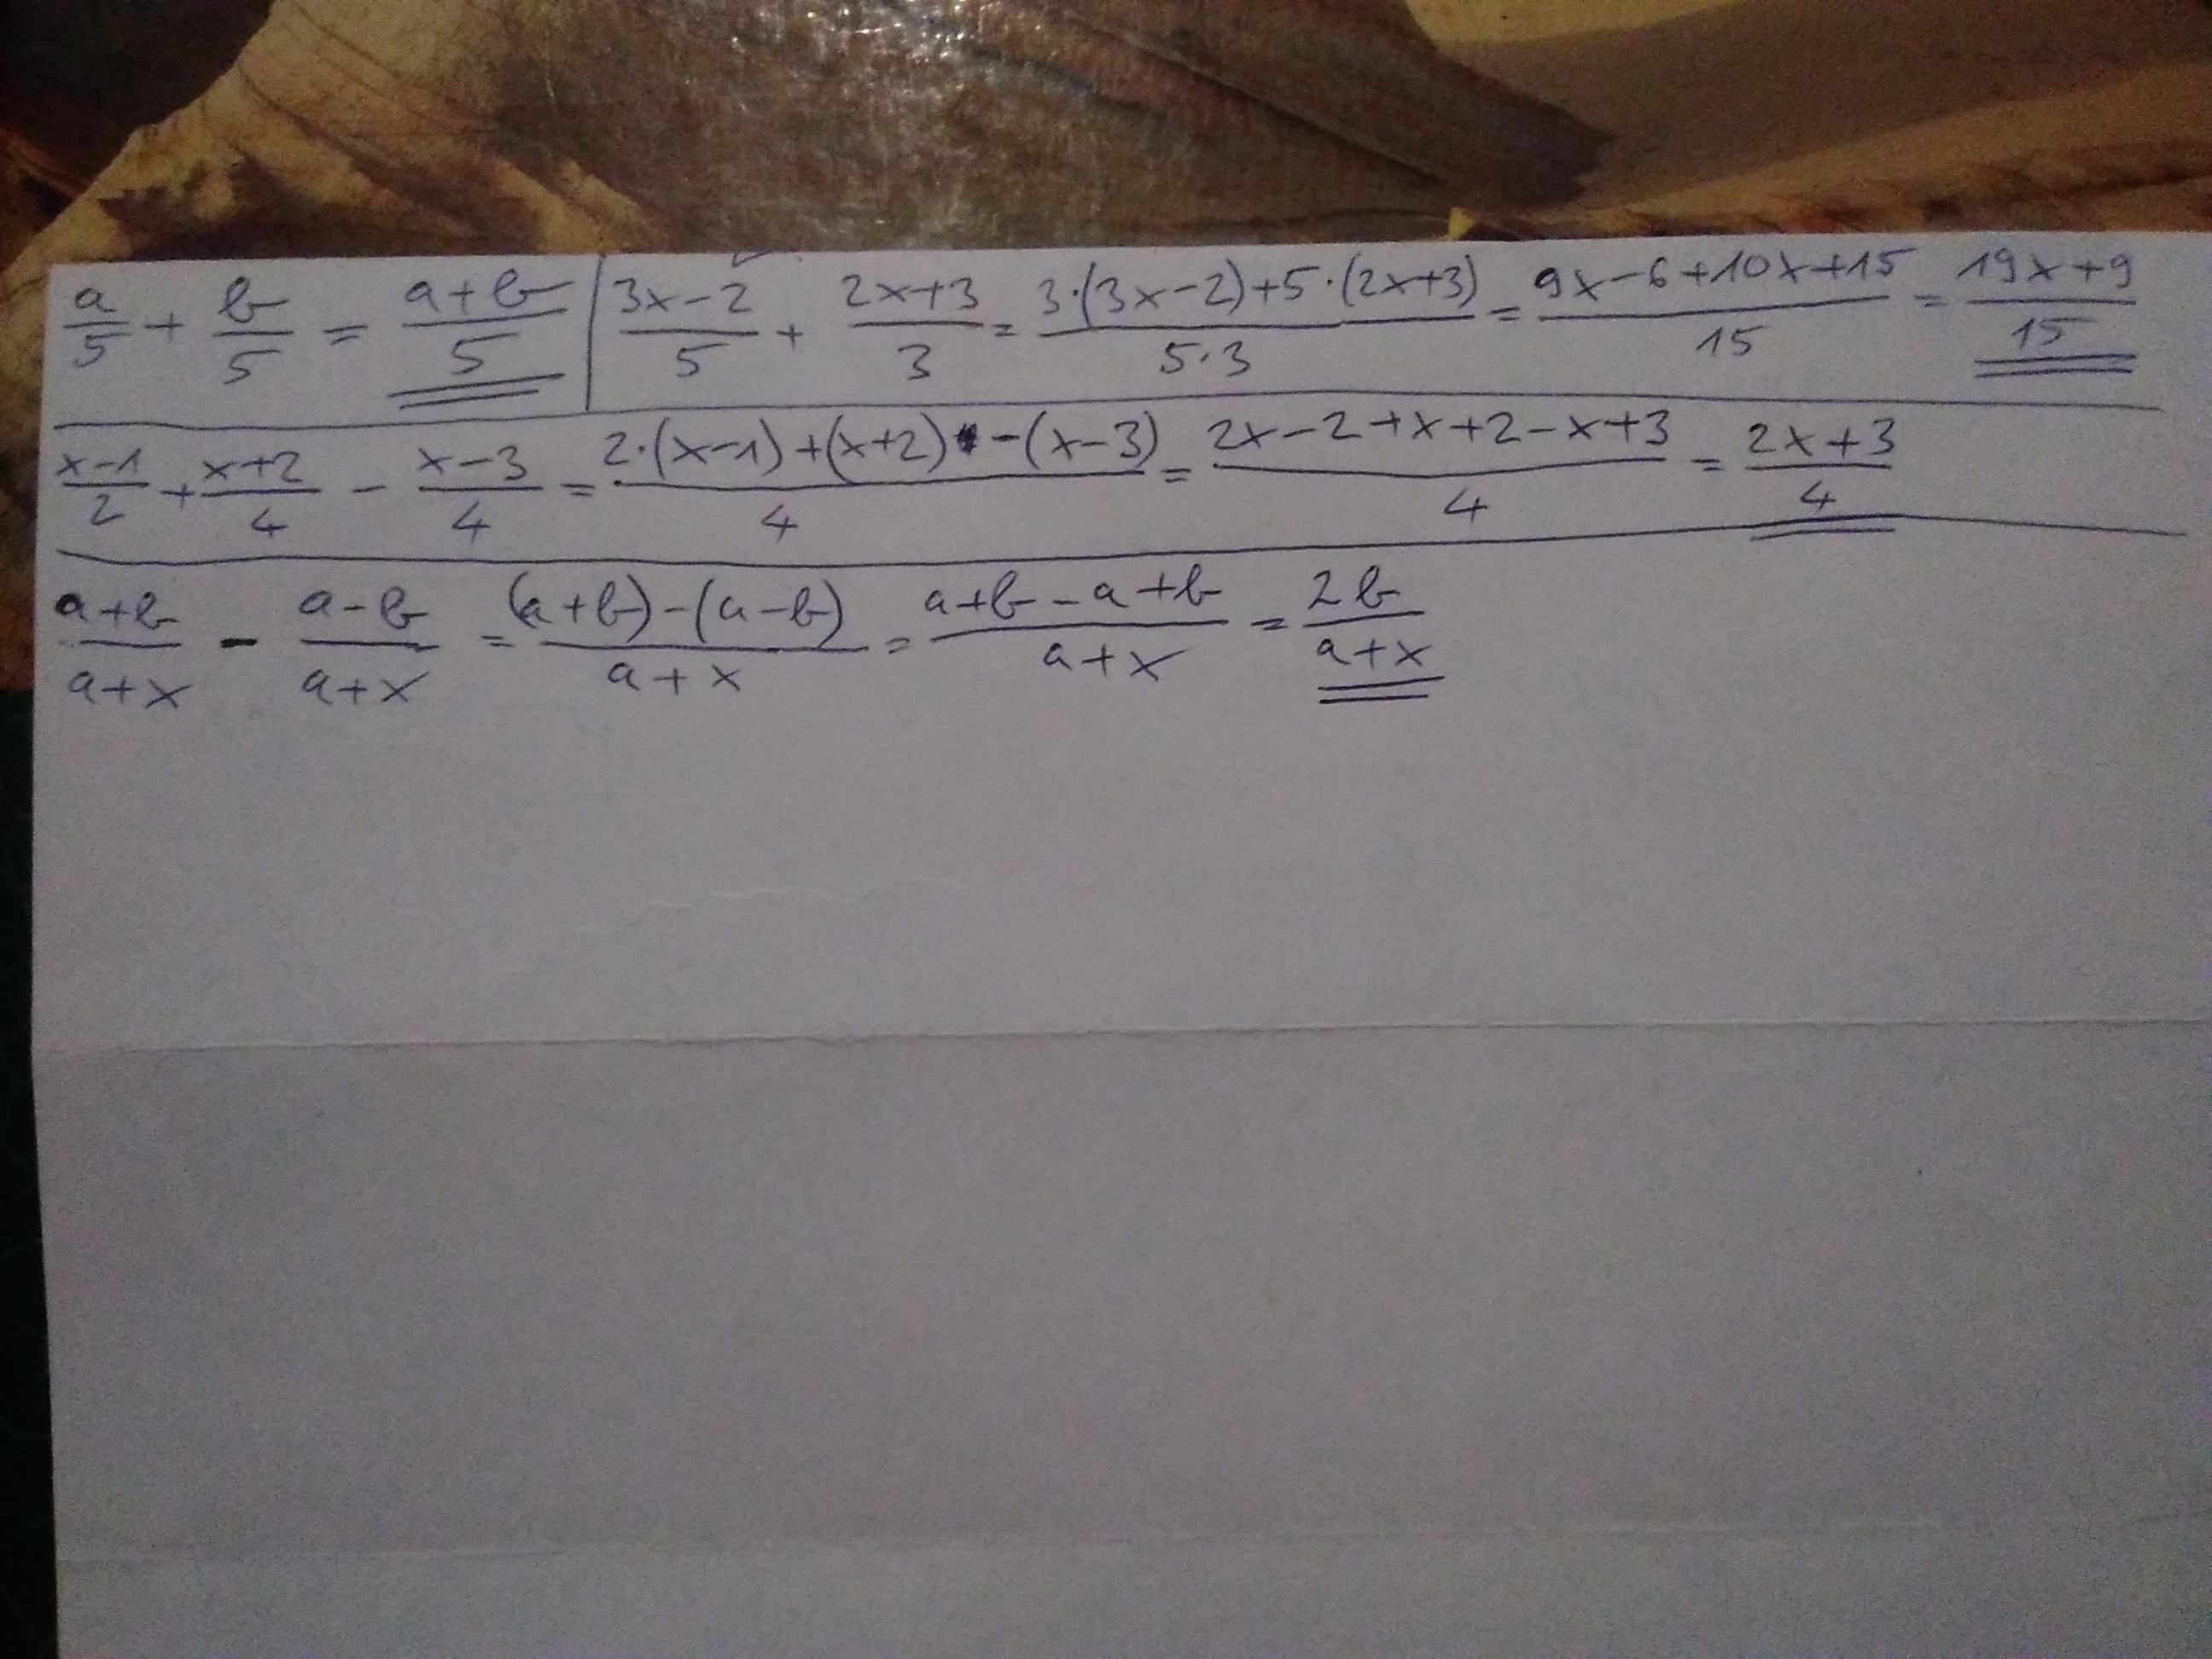 a/5 + b/5 = (a+b)/5 | (3x-2)/5 + (2x+3)/3 = (3·(3x-2)+5·(2x+3))/(5·3) = (9x-6+10x+15)/15 = (19x+9)/15
(x-1)/2 + (x+2)/4 - (x-3)/4 = (2·(x-1)+(x+2)-(x-3))/4 = (2x-2+x+2-x+3)/4 = (2x+3)/4
(a+b)/(a+x) - (a-b)/(a+x) = ((a+b)-(a-b))/(a+x) = (a+b-a+b)/(a+x) = 2b/(a+x)